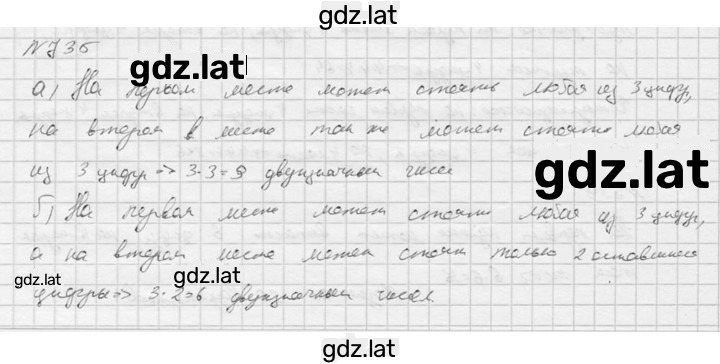 gdz.lat
№736
gdz.lat
а) На первом месте может стоять любая из 3 цифр,
на втором в месте так же может стоять любая
из 3 цифр => 3·3=9 двузначных чисел
gdz.lat
б) На первая место может стоять любая из 3 цифр,
а на втором месте может стоять только 2 оставшиеся
gdz.lat gdz.lat
цифры => 3·2=6 двузначных чисел.
gdz.lat